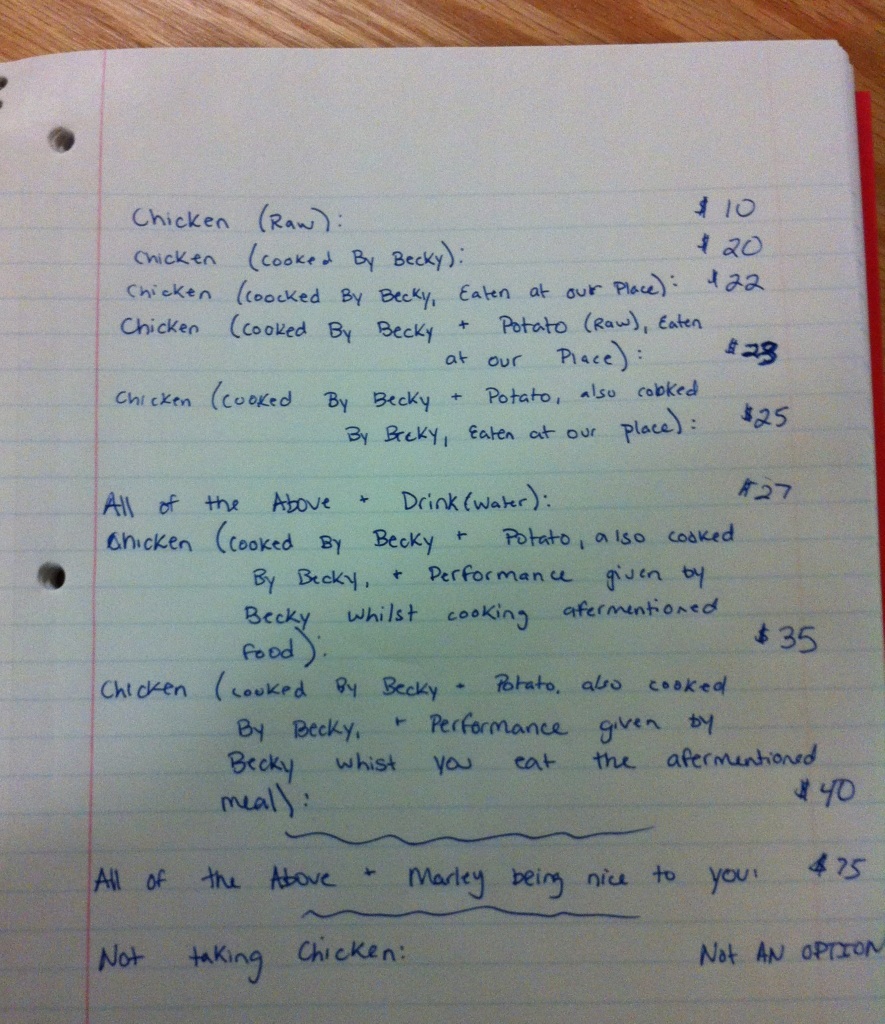 Chicken (Raw): $10
Chicken (cooked By Becky): $20
Chicken (coocked By Becky, Eaten at our Place): $22
Chicken (cooked By Becky + Potato (Raw), Eaten
at our Place): $23
Chicken (cooked By Becky + Potato, also cooked
By Becky, Eaten at our place): $25
All of the Above + Drink (water): $27
Chicken (cooked By Becky + Potato, also cooked
By Becky, + Performance given by
Becky whilst cooking afermentioned
food): $35
Chicken (cooked By Becky + Potato, also cooked
By Becky, + Performance given by
Becky whist you eat the afermentioned
meal): $40
All of the Above + Marley being nice to you: $75
Not taking Chicken: Not AN OPTION